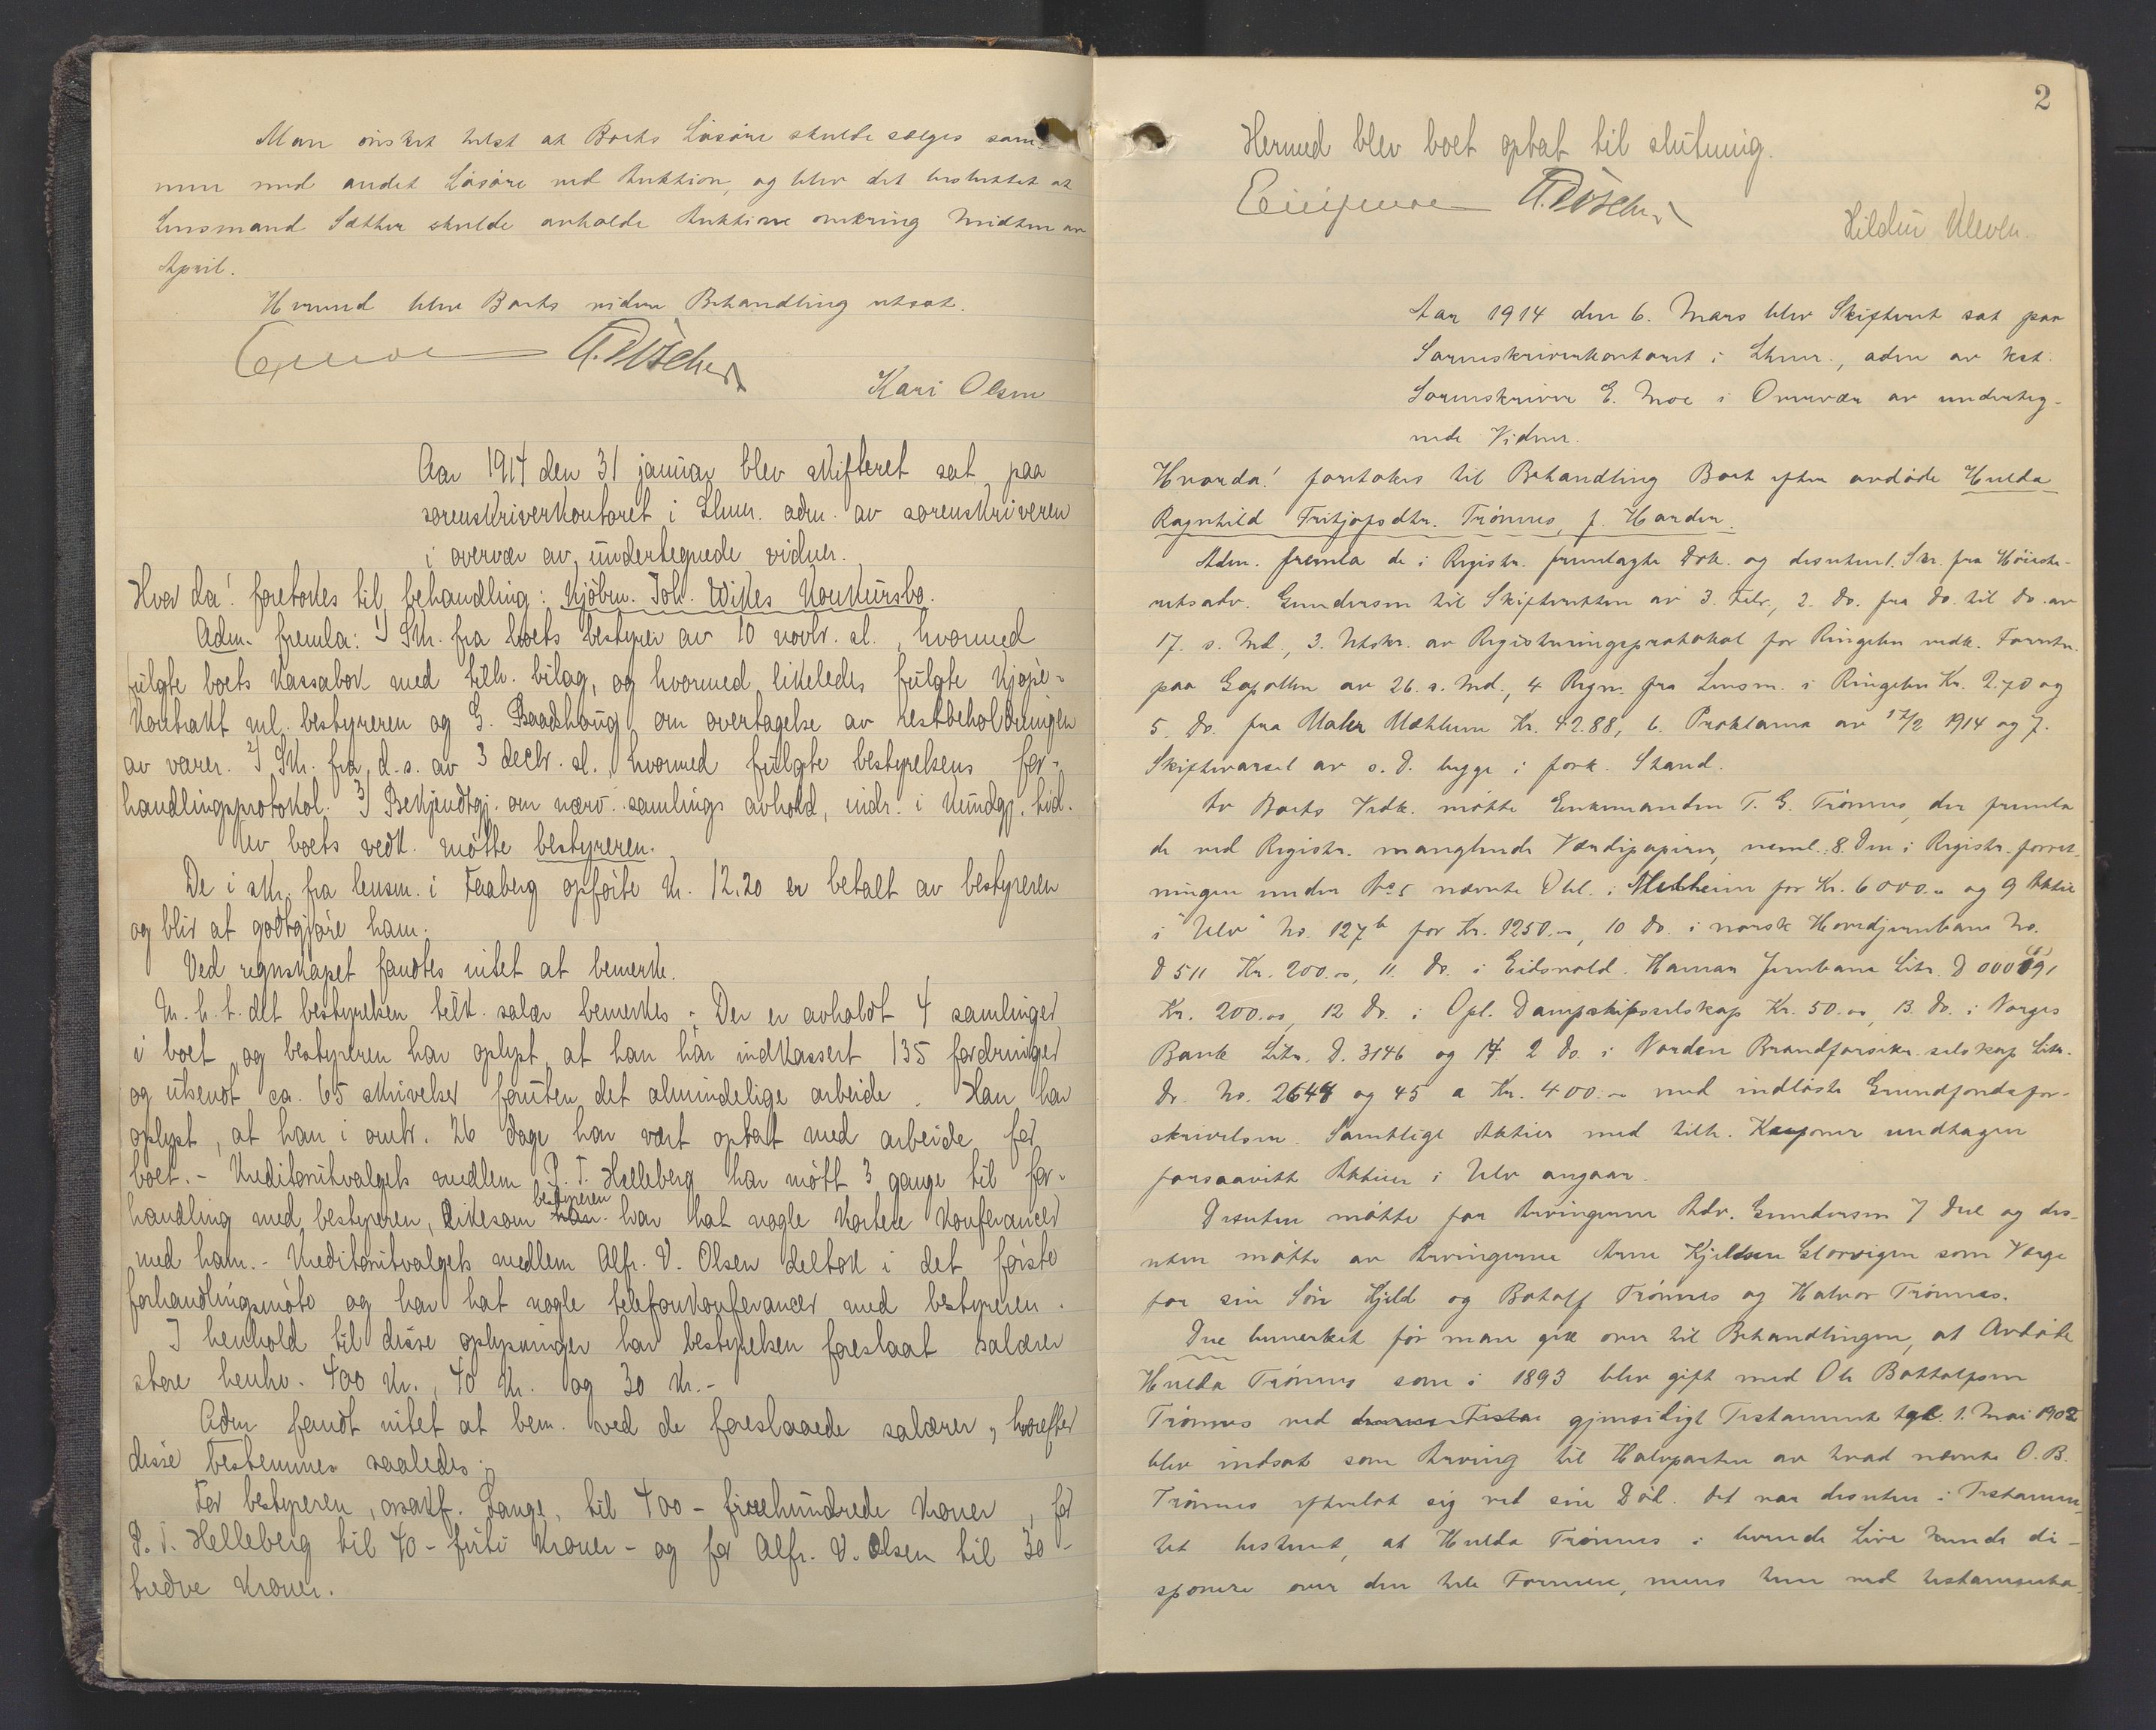 Man ønsket helst at Boets Løsøre skulde sælges sam-
men med andet Løsøre ved Auktion, og blev det besluttet at
Lensmand Sæther skulde avholde Auktion omkring Midten av
April.
Hermed blev Boets videre Behandling utsat.
Kari Olsen
Aar 1914 den 31 januar blev skifteret sat paa
sorenskriverkontoret i Lhmr. adm. av sorenskriveren
i overvær av undertegnede vidner.
Hvor da! foretokes til behandling: Kjøbm. Joh. Wikes Konkursbo.
Adm. fremla: 1) Skr. fra boets bestyrer av 10 novbr. sl., hvormed
fulgte boets kassabok med tilh. bilag, og hvormed likeledes fulgte kjøpe-
kontrakt ml. bestyreren og G. Baadshaug om overtagelse av restbeholdningen
av varer. 2) Skr. fra d. s. av 3 decbr. sl., hvormed fulgte bestyrelsens for-
handlingsprotokol. 3) Bekjendtgj. om nærv. samlings avhold, indr. i Kundgj. tid.
Av boets vedk. møtte bestyreren.
De i skr. fra lensm. i Faaberg opførte Kr. 12.20 er betalt av bestyreren
og blir at godtgjøre ham.
Ved regnskapet fandtes intet at bemerke.
M. h. t. det bestyrelsen tilk. salær bemerkes: Der er avholdt 4 samlinger
i boet, og bestyreren har oplyst at han har indkassert 135 fordringer
og utsendt ca. 65 skrivelser foruten det almindelige arbeide. Han har
oplyst, at han i omtr. 26 dage har vært optat med arbeide for
boet. - Kreditorutvalgets medlem P. T. Helleberg har møtt 3 gange til for-
handling med bestyreren, likesom han bestyreren har hat nogle kortere konferancer
med ham. - Kreditorutvalgets medlem Alfr. V. Olsen deltok i det første
forhandlingsmøte og har hat nogle telefonkonferancer med bestyreren.
I henhold til disse oplysninger har bestyrelsen foreslaat salærer
store henhv. 400 kr., 40 kr. og 30 kr. -
Adm fandt intet at bem. ved de foreslaaede salærer, hvorefter
disse bestemmes saaledes:
For bestyreren, orsakf. Lange, til 400 - firehundrede kroner, for
P. T. Helleberg til 40 - førti kroner - og for Alfr. V. Olsen til 30 -
tredve kroner.
2
Hermed blev boet optat til slutning.
Hildur Kleven.
Aar 1914 den 6. Mars blev Skifteret sat paa
Sorenskriverkontoret i Lhmr., adm av kst.
Sorenskriver E. Moe i Overvær av underteg-
nede Vidner.
Hvorda! foretokes til Behandling Boet efter avdøde Hulda
Ragnhild Fritjofsdtr. Trønnes, f. Harder.
Adm. fremla de i Registr. fremlagte Dok. og desuten 1. Skr. fra Høieste-
retsadv. Gundersen til Skifteretten av 3. Febr., 2. Do. fra do. til do. av
17. s. Md., 3. Utskr. av Registreringsprotokol for Ringebu vedk. Forretn.
paa Gopollen av 26. s. Md., 4 Regn. fra Lensm. i Ringebu Kr. 2.70 og
5. Do. fra Maler Mæhlum Kr. 42.88, 6. Proklama av 17/2 1914 og 7.
Skiftevarsel av s. D. begge i fork. Stand.
Av Boets Vedk. møtte Enkemanden T. G. Trønnes, der fremla
de ved Registr. manglende Værdipapirer, neml.: 8. Den i Registr. forret-
ningen under No 5 nævnte Obl. i Melheim for Kr. 6000.- og 9 Aktie
i "Ulv" No. 127b for Kr. 1250.-, 10 Do. i norsk Hovedjernbane No.
D 511 Kr. 200.00, 11. Do. i Eidsvold. Hamar Jernbane Litr. D 000191
Kr. 200.00, 12 Do. i Opl. Dampskipsselskap Kr. 50.00, 13. Do. i Norges
Bank Litr. D. 3146 og 14 2 Do. i Norden Brandforsikr. selskap Litr.
Dr. No. 2644 og 45 a Kr. 400.- med indløste Grundfondsfor-
skrivelser. Samtlige Aktier med tilh. Kuponer undtagen
forsaavitt Aktien i Ulv angaar.
Desuten møtte for Arvingerne Adv. Gundersen 7 Del og des-
uten møtte av Arvingerne Arne Kjeldsen Storvigen som Værge
for sin Søn Kjeld og Botolf Trønnes og Halvor Trønnes.
Due bemerket før man gik over til Behandlingen, at Avdøde
Hulda Trønnes som i 1893 blev gift med Ole Bottolfsen
Trønnes ved gjensidigt Testament dgt. 1. Mai 1902
blev indsat som Arving til Halvparten av hvad nævnte O. B.
Trønnes efterlot sig ved sin Død. Det var desuten i Testamen-
tet bestemt, at Hulda Trønnes i levende Live kunde di-
sponere over den hele Formue, mens hun ved testamenta-